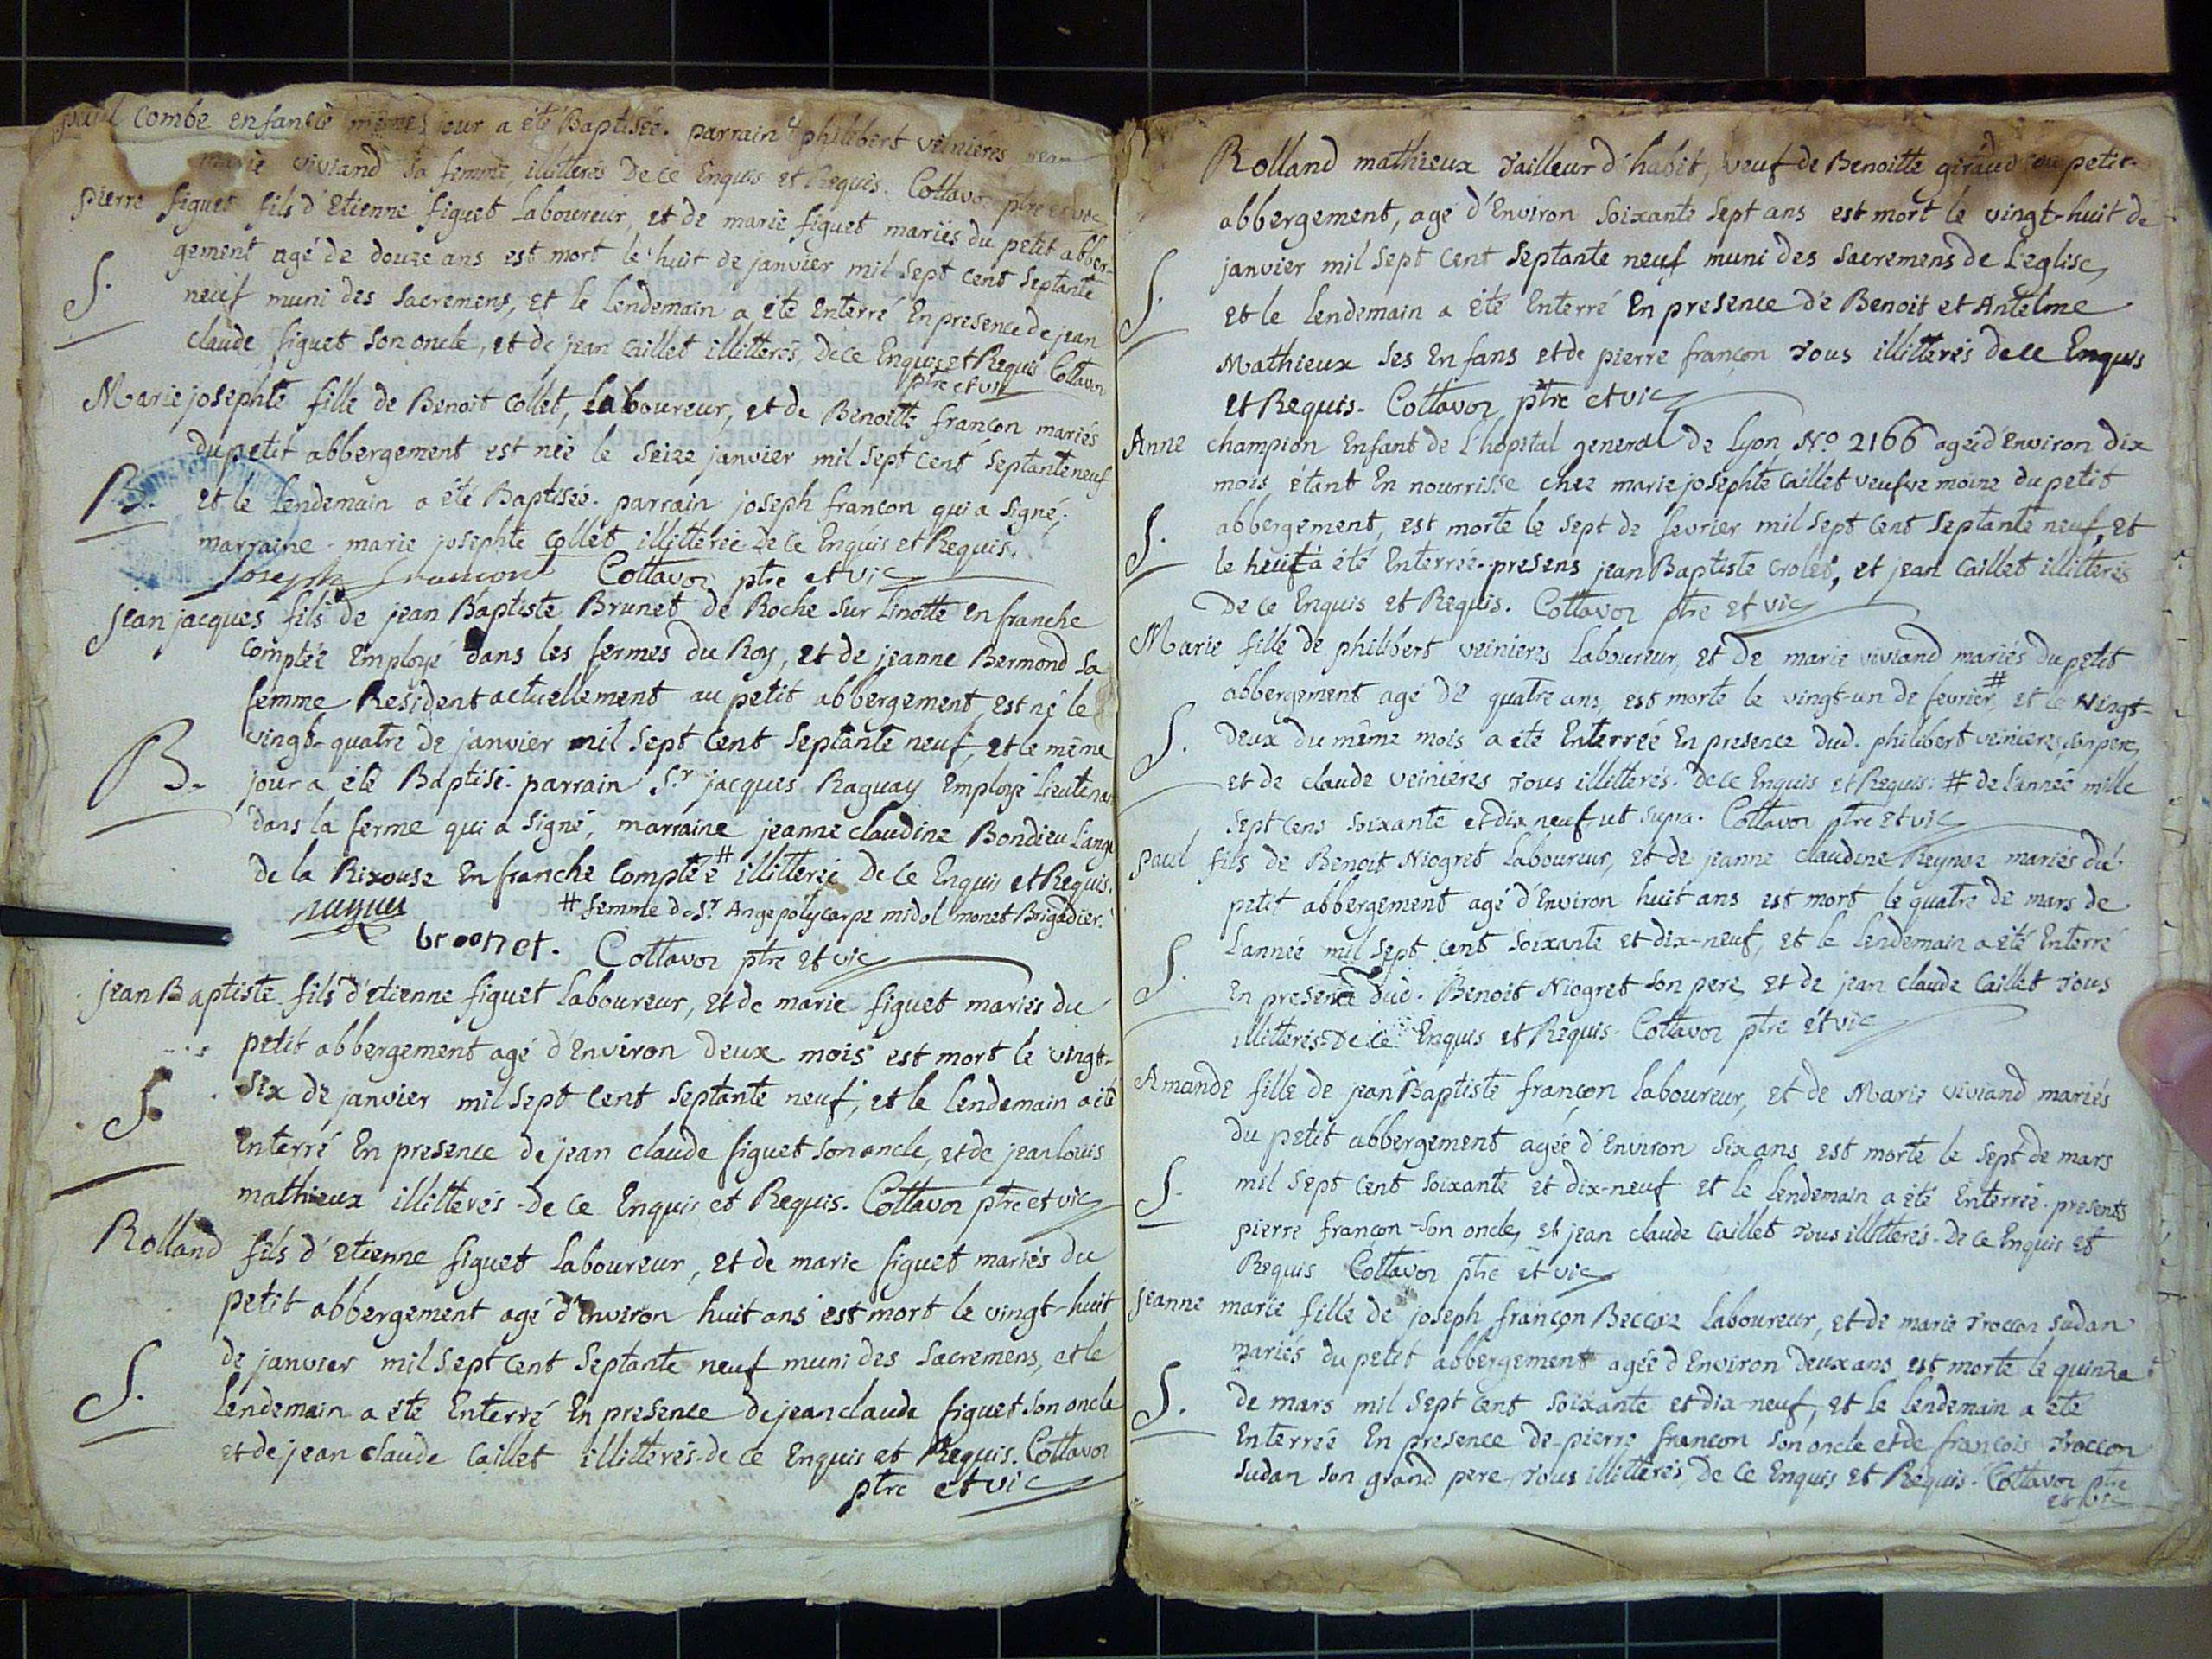 paul Combe enfans le même jour a été Baptisée. parrain philibert veinieres
marie viviand sa femme, illitterés De ce Enquis et Requis. Cottavoz ptre et vic
pierre figuet fils d'Etienne figuet Laboureur, et de marie figuet mariés du petit abber-
gement agé de douze ans est mort le huit de janvier mil sept cent septante
S. neuf muni des sacremens, et le lendemain a été Enterré En presence de jean
claude figuet son oncle, et de jean Caillet illitterés, De ce Enquis et Requis Cottavoz
ptre et vic
Marie josephte fille de Benoit Collet, Laboureur, et de Benoitte françon mariés
du petit abbergement est née le seize janvier mil sept cent septante neuf
B. et le lendemain a été Baptisée. parrain joseph françon qui a signé,
marraine marie josephte Collet illitterée De ce Enquis et Requis.
joseph françont Cottavoz ptre et vic
jean jacques fils de jean Baptiste Brunet de Roche sur Linotte en franche
Comptée Employé dans les fermes du Roy, et de jeanne Bermond sa
femme Resident actuellement au petit abbergement, est né le
vingt-quatre de janvier mil sept cent septante neuf, et le même
B. jour a été Baptisé. parrain Sr. jacques Raguay Employé Lieutenan
dans la ferme qui a signé, marraine jeanne claudine Bondieu Lange
de la Rixouse En franche Comptée # illitterée De ce Enquis et Requis.
# femme de Sr. Ange polycarpe midol monet Brigadier.
broonet. Cottavoz ptre et vic
jean Baptiste fils d'etienne figuet Laboureur, et de marie figuet mariés du
petit abbergement agé d'Environ deux mois est mort le vingt-
S. six de janvier mil sept cent septante neuf, et le lendemain a été
Enterré En presence de jean claude figuet son oncle, et de jean louis
mathieux illitterés - De ce Enquis et Requis. Cottavoz ptre et vic
Rolland fils d'Etienne figuet Laboureur, et de marie figuet mariés du
petit abbergement agé d'Environ huit ans est mort le vingt-huit
de janvier mil sept cent septante neuf muni des sacremens, et le
S. lendemain a été Enterré En presence de jean claude figuet son oncle
et de jean claude Caillet illitterés. de ce Enquis et Requis. Cottavoz
ptre et vic
Rolland mathieux Tailleur d'habit, veuf de Benoitte giraud du petit-
abbergement, agé d'Environ soixante sept ans est mort le vingt-huit de
S. janvier mil sept cent septante neuf muni des sacremens de L'eglise,
et le lendemain a été Enterré En presence de Benoit et Antelme
Mathieux ses Enfans et de pierre françon Tous illitterés de ce Enquis
et Requis. Cottavoz ptre et vic
Anne champion Enfant de l'hopital general de Lyon, No. 2166 agée d'Environ dix
mois étant En nourrisse chez marie josephte Caillet veufve moine du petit
S. abbergement, est morte le sept de fevrier mil sept cent septante neuf, et
le huit a été Enterrée. presens jean Baptiste Crolet, et jean Caillet illitterés
De ce Enquis et Requis. Cottavoz ptre et vic
Marie fille de philibert veinieres Laboureur, et de marie viviand mariés du petit
abbergement agé de quatre ans, est morte le vingt-un de fevrier # et le vingt-
S. deux du même mois a été Enterrée En presence dud. philibert veinieres, son pere,
et de claude veinieres Tous illitterés. De ce Enquis et Requis. # de L'année mille
sept cens soixante et dix neuf ut supra. Cottavoz ptre et vic
paul fils de Benoit Niogret Laboureur, et de jeanne claudine Reynoz mariés du
petit abbergement agé d'Environ huit ans est mort le quatre de mars de
L'année mil sept cent soixante et dix-neuf, et le lendemain a été Enterré
S. En presence dud. Benoit Niogret son pere, et de jean claude Caillet Tous
illitterés De ce Enquis et Requis. Cottavoz ptre et vic
Amande fille de jean Baptiste françon Laboureur, et de Marie viviand mariés
du petit abbergement agée d'Environ six ans est morte le sept de mars
S. mil sept cent soixante et dix-neuf et le lendemain a été Enterrée. presents
pierre françon son oncle, et jean claude Caillet Tous illitterés. De ce Enquis et
Requis Cottavoz ptre et vic
jeanne marie fille de joseph françon Beccaz Laboureur, et de marie Troccon sudan
mariés du petit abbergement agée d'Environ deux ans est morte le quinze
S. de mars mil sept cent soixante et dix-neuf, et le lendemain a été
Enterrée En presence de pierre françon son oncle et de françois Troccon
sudan son grand pere Tous illitterés, De ce Enquis et Requis. Cottavoz ptre
et vic